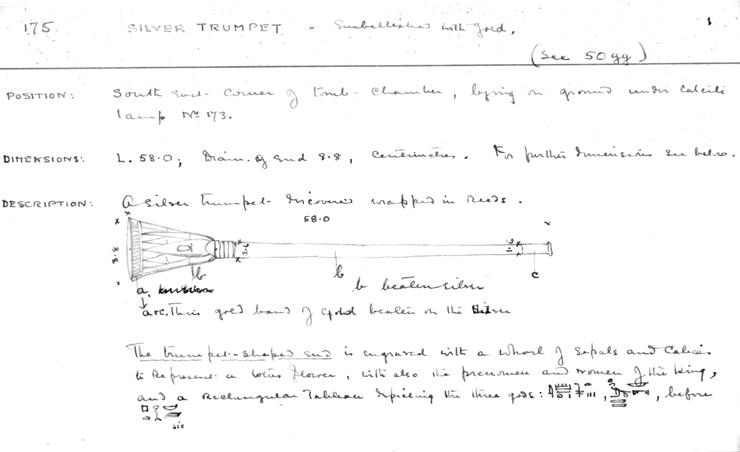 175. SILVER TRUMPET. Embellished with gold. 1
(See 50gg)
POSITION: South East corner of tomb-chamber, lying on ground under calcite
lamp No 173.
DIMENSIONS: L. 58.0; Diam. of end 8.8, centimetres. For further dimensions see below.
DESCRIPTION: A silver trumpet discovered wrapped in reeds.
58.0
8.8
b b c
a. b beaten silver
a+c. Thin gold band of gold beaten on the silver
The trumpet-shaped end is engraved with a whorl of sepals and calices
to represent a lotus flower, with also the prenomen and nomen of the King,
and a rectangular tableau depicting the three gods: , before
sic